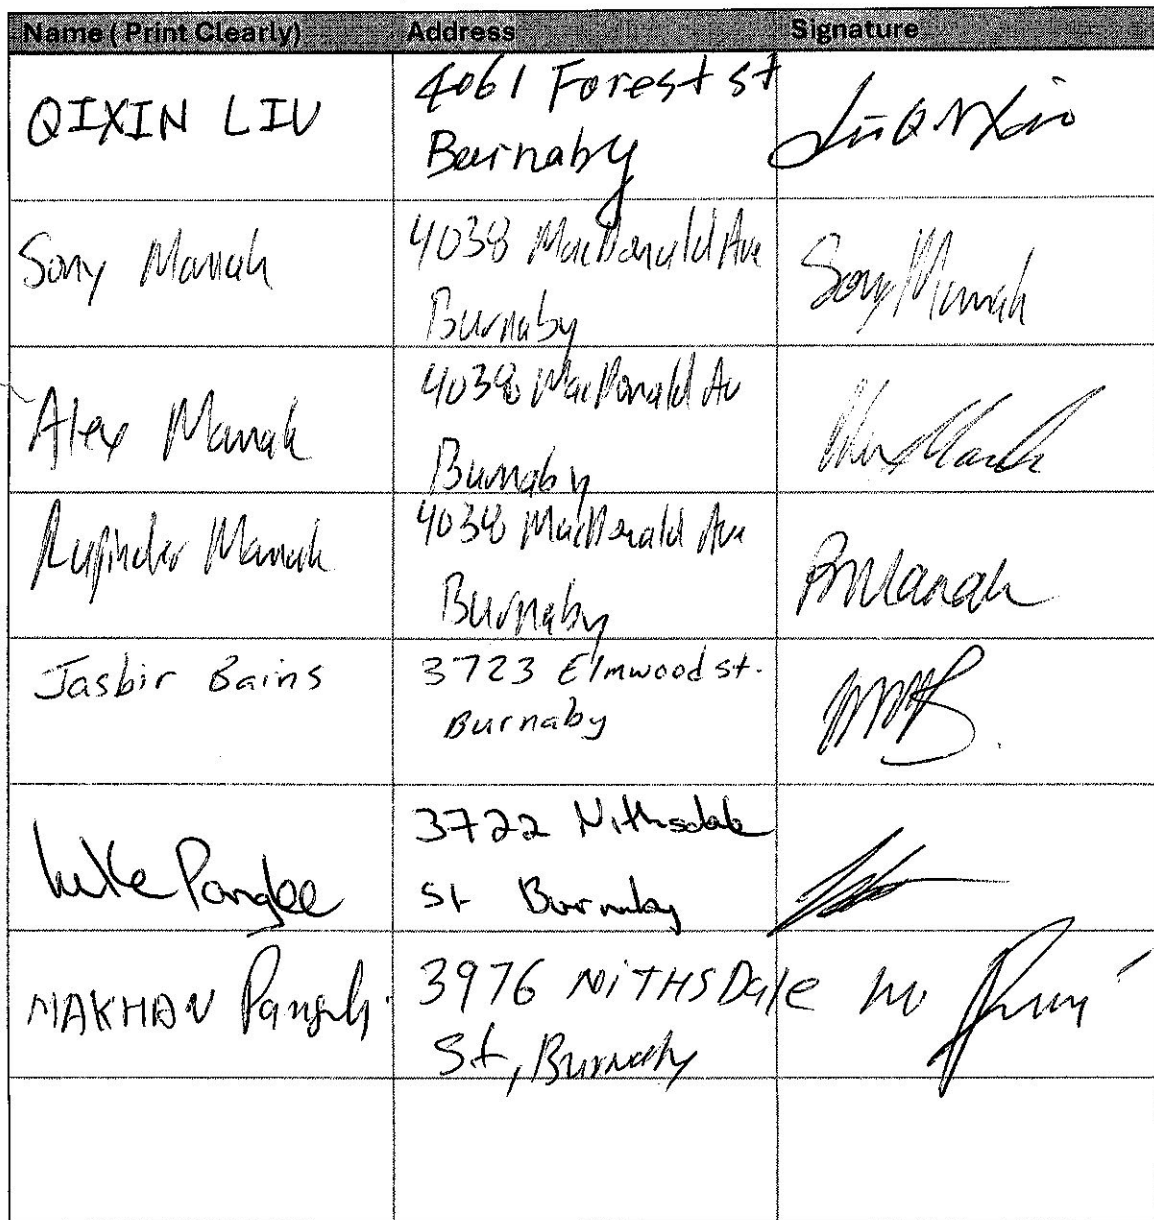 Name ( Print Clearly) Address Signature
QIXIN LIU 4061 Forest st
Burnaby
Sony Manak 4038 MacDonald Ave Sony Manak
Burnaby
Alex Manak 4038 MacDonald Av
Burnaby
Rupinder Manak 4038 MacDonald Ave RManak
Burnaby
Jasbir Bains 3723 Elmwood st.
Burnaby
3722 Nithsdale
St Burnaby
MAKHAN 3976 NiTHSDale
St, Burnaby